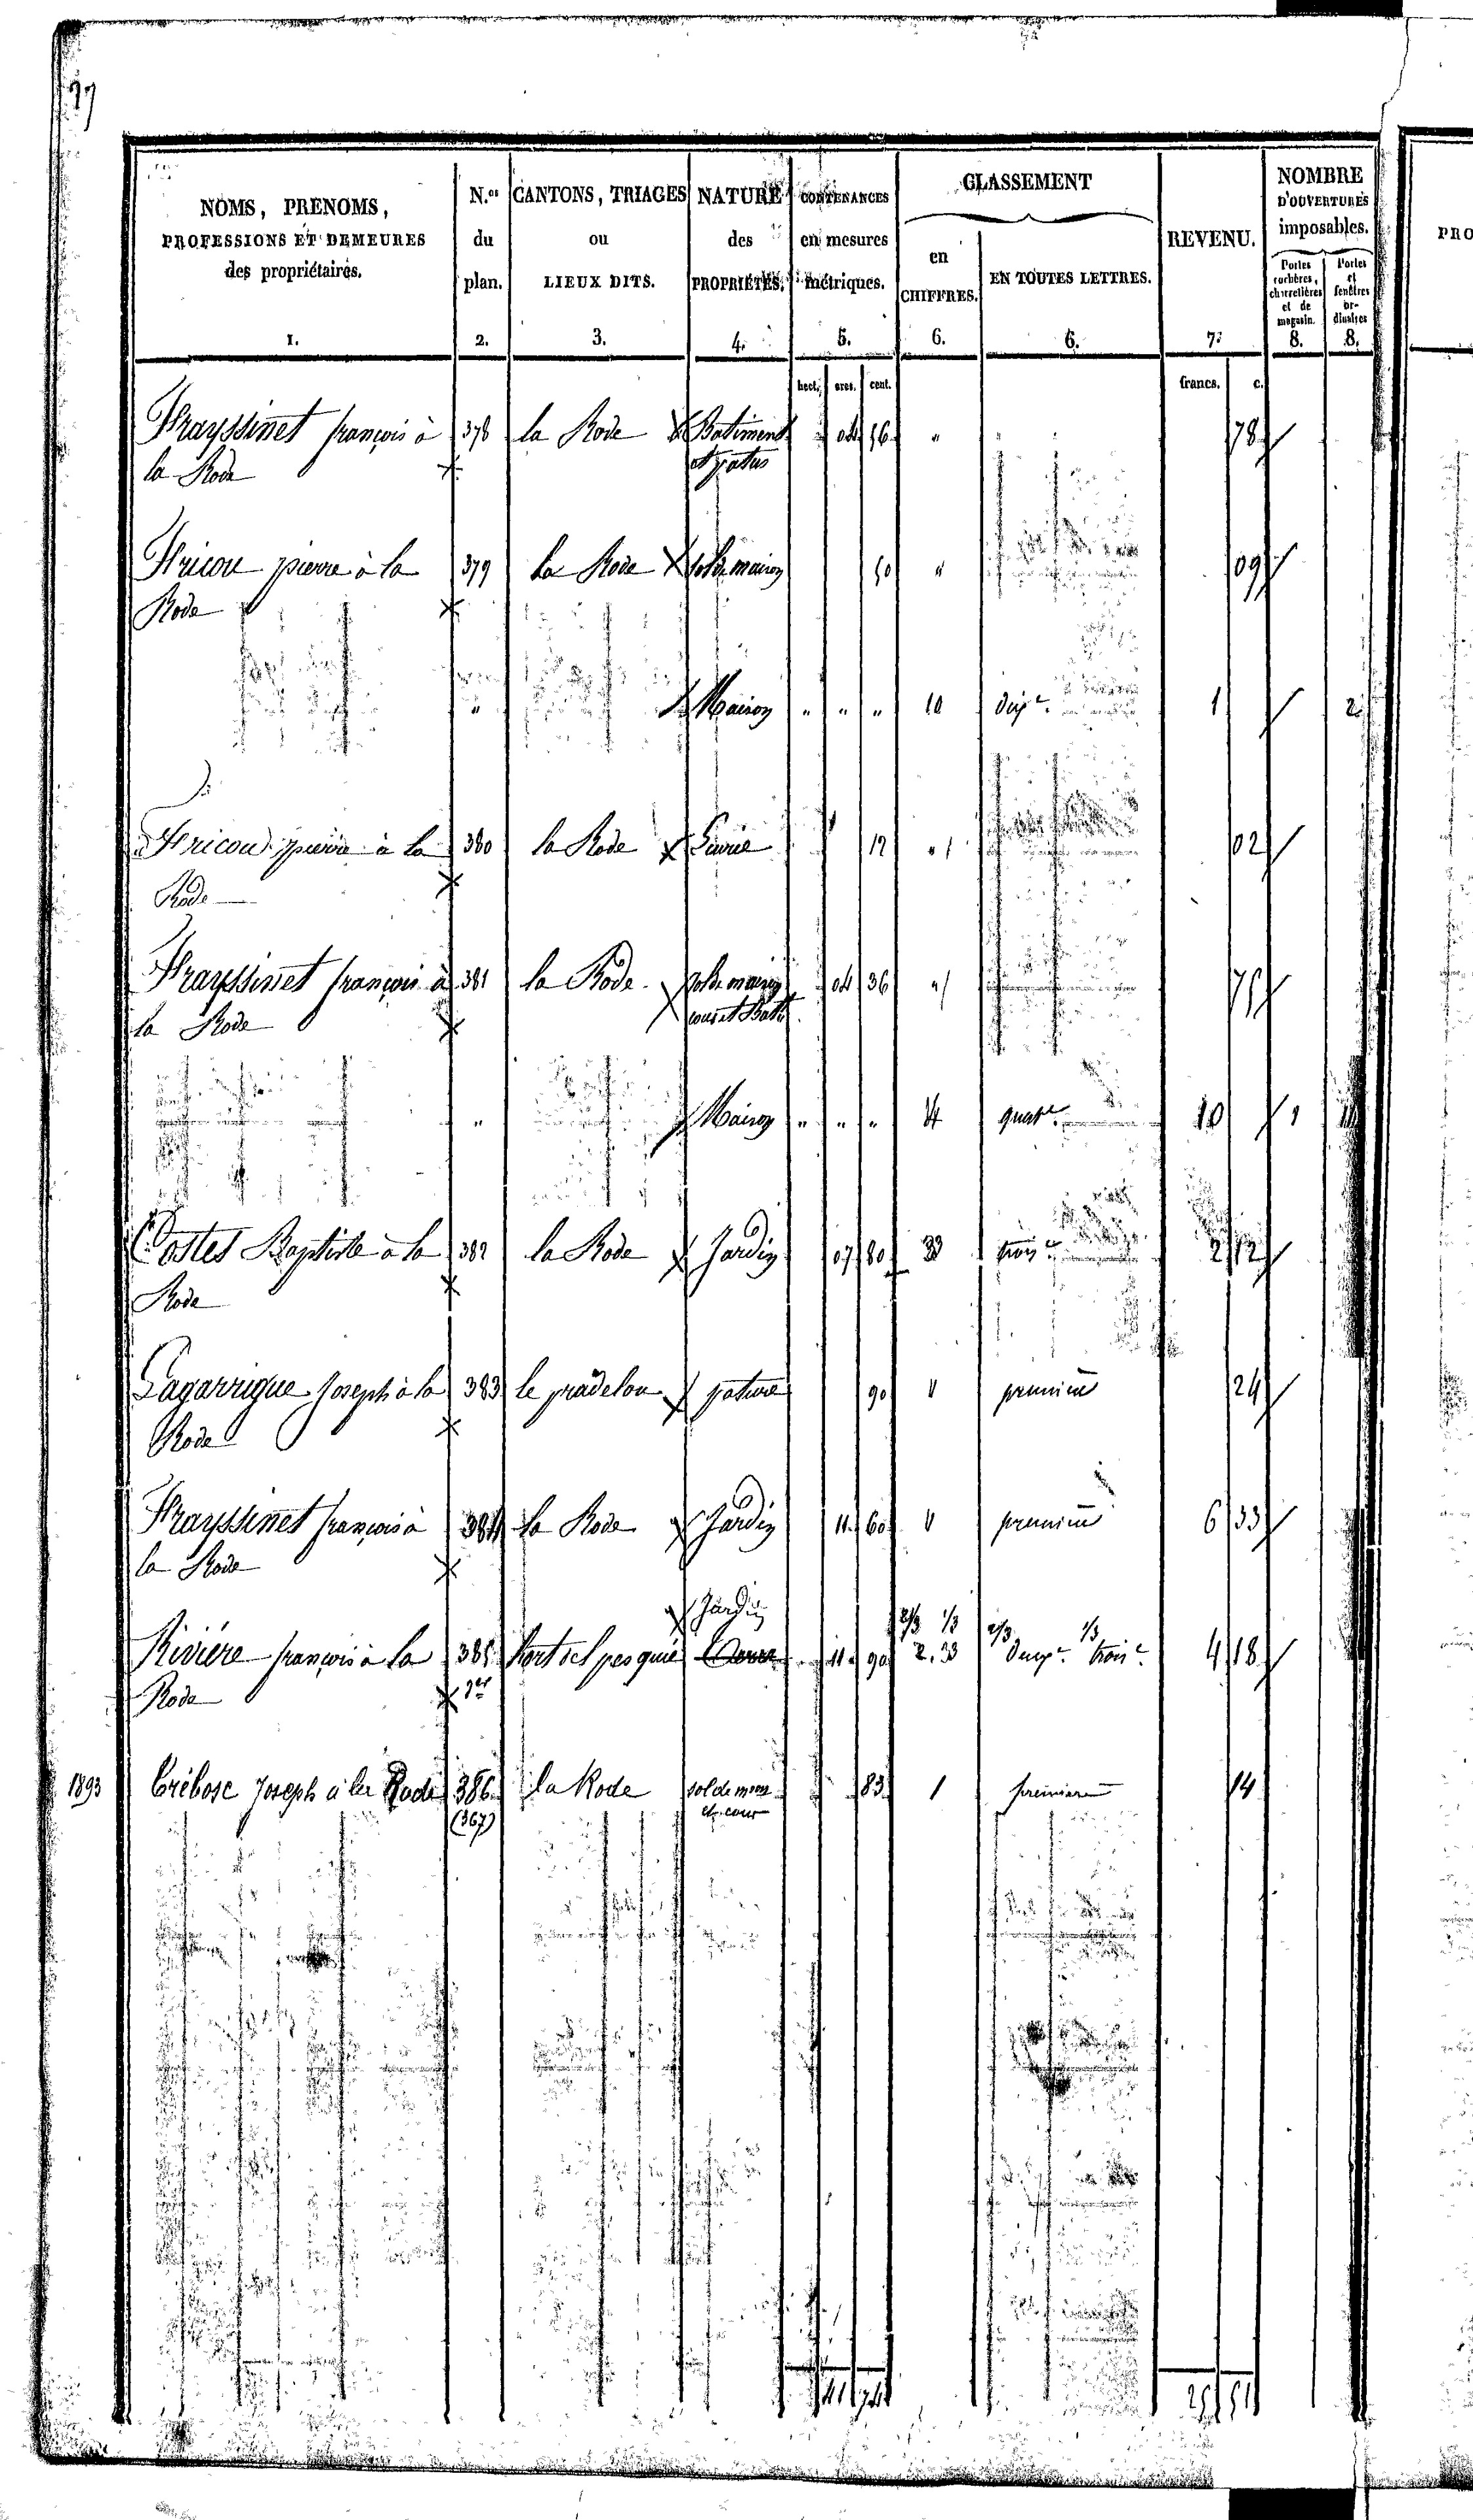 NOMS, PRENOMS, PROFESSIONS ET DEMEURES des propriétaires. 1.
N.os du plan. 2.
CANTONS, TRIAGES ou LIEUX DITS. 3.
NATURE des PROPRIÉTÉS. 4.
CONTENANCES en mesures métriques. 5.
CLASSEMENT
en CHIFFRES. 6.
EN TOUTES LETTRES. 6.
REVENU. 7.
NOMBRE D'OUVERTURES imposables.
Portes cochères, charretières et de magasin. 8.
Portes et fenêtres ordinaires 8.
PRO
hect. ares. cent. francs. c.
Frayssinet françois à 378 la Rode Batiment 04 56 " 78
la Rode et patus
Fricou pierre à la 379 la Rode sol de maison 50 " 09
Rode
" Maison " " " 10 dix.e 1 2
Fricou pierre à la 380 la Rode 12 " 02
Rode
Frayssinet françois à 381 la Rode sol de maison 04 36 " 75
la Rode cour et Bati
" Maison " " " quat.e 10 1
Costes Baptiste à la 382 la Rode Jardin 07 80 3 trois.e 2 12
Rode
Lagarrigue Joseph à la 383 le pradelou pature 90 1 premiere 24
Rode
Frayssinet françois à 384 la Rode Jardin 11 60 1 premiere 6 33
la Rode
Jardin 2/3 1/3 2/3 1/3
Riviére françois à la 385 hort del pesquié 11 90 2. 3 deux.e trois.e 4 18
Rode
1893 Crébose Joseph à la Rode 386 la Rode sol de mon 83 1 premiere 14
(367) et cour
41 74 25 51